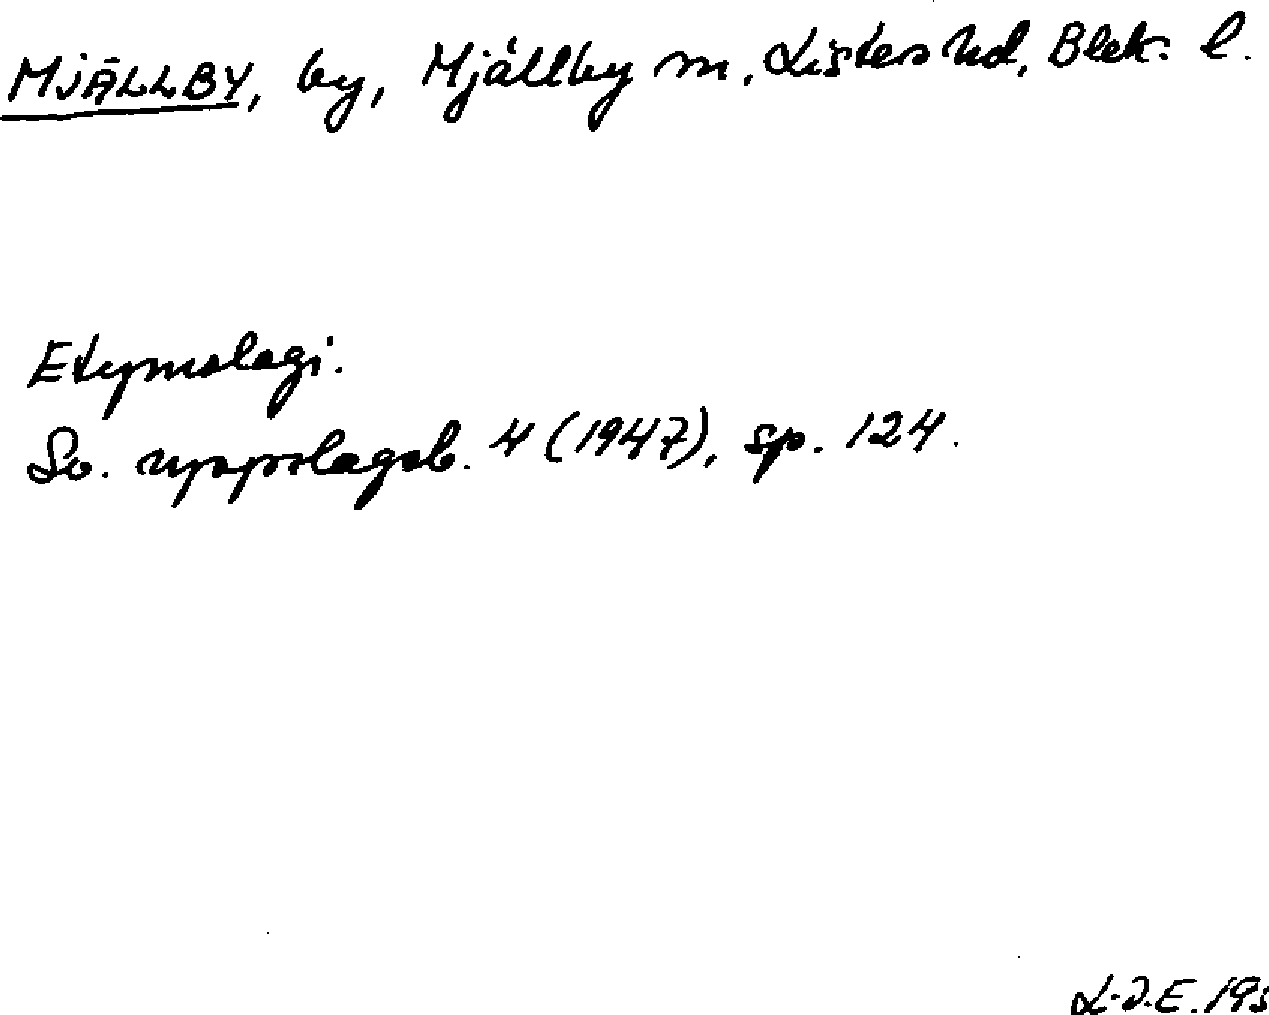 MJÄLLBY, by, Mjällby sn, Listers hd, Blek. l.
Etymologi.
Sv. uppslagsb. 4 (1947), sp. 124.
L-J.E. 195